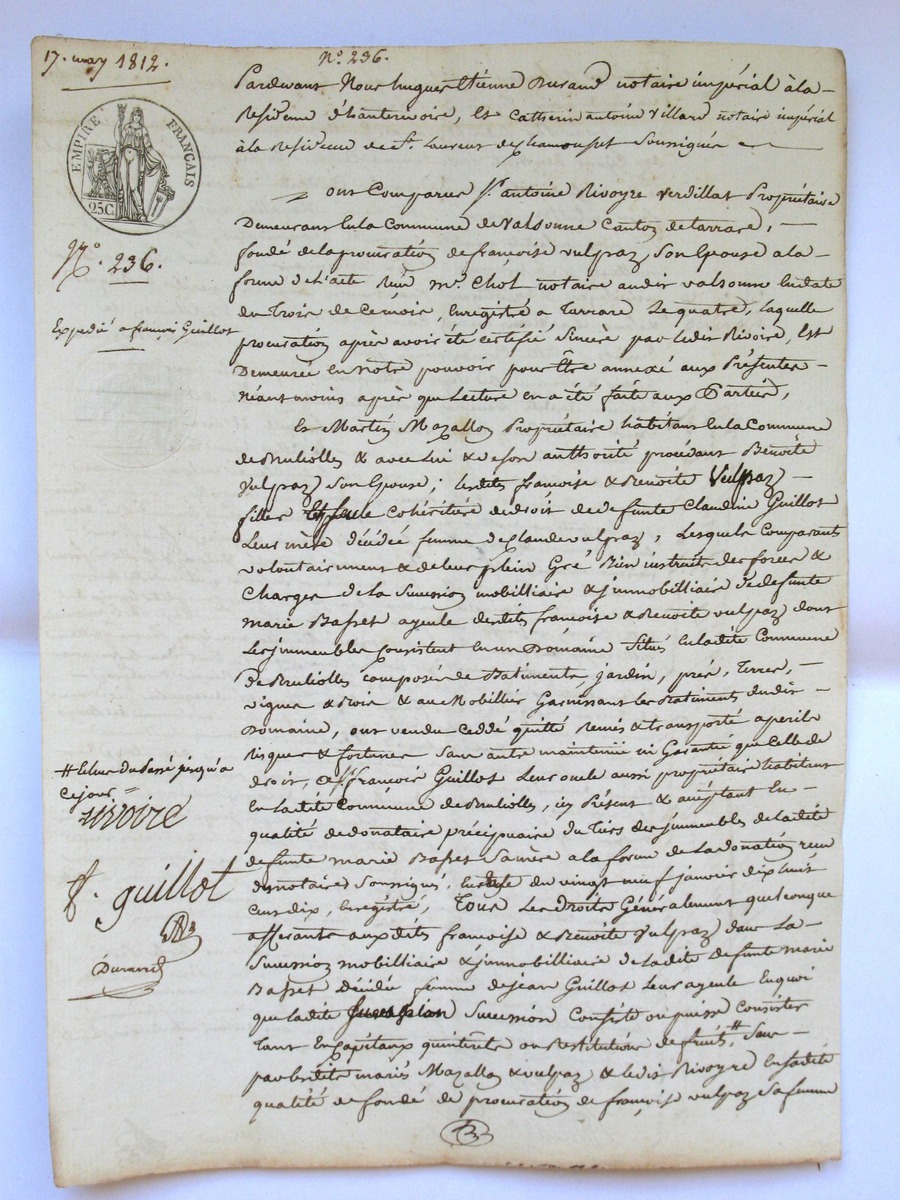 17. may 1812.
N.º 236.
Pardevant Nous hugues Etienne Durand notaire impérial à la
Residence d'hauterivoire, Et Catherin antoine Villard notaire impérial
à la Residence de S.t Laurent de chamousset Soussignés
EMPIRE FRANÇAIS
25C
ont Comparus S.r antoine Rivoyre Verdillat Propriétaire
Demeurant En la Commune de Valsonne Canton de tarrare,
N.º 236.
fondé de la procuration de françoise vulpaz Son Epouse a la
forme de l'acte Reçu M.e Chol notaire audit valsonne En date
du Trois de Ce mois, Enregistré a Tarrare Le quatre, Laquelle
Expedié a françois Guillot
procuration après avoir été certifié Sincère par Ledit Rivoire, Est
Demeurée En notre pouvoir pour Être annexé aux Présentes
Néantmoins après que Lecture en a été faite aux Parties,
Et Martin Mazallon Propriétaire habitant En la Commune
de Brulliolles & avec Lui & de son authorité procédant Benoite
Vulpaz Son Epouse; Lesdites françoise & Benoite Vulpaz
filles Et seule cohéritière de droit de defunte Claudine Guillot
Leur mère décédée femme de Claude vulpaz, Lesquels Comparants
volontairement & de leur plein Gré Bien instruits des forces &
Charges de La Succession mobilliaire & jmmobilliaire de defunte
marie Basset ayeule desdites françoise & Benoite vulpaz dont
Les jmmeubles consistent en un Domaine Situé En ladite Commune
de Brulliolles composé de Batiments, jardin, pré, Terres,
vignes & Bois & au Mobillier Garnissant Les Batiments dudit
Domaine, ont vendu Ceddé quitté Remis & transporté a perils
Risques & fortunes Sans autre maintenue ni Garantie que Celle de
# Echus du Passé jusqu'a
Ce jour =
droit, a S.r françois Guillot Leur oncle aussi propriétaire habitant
En Ladite Commune de Brulliolles, ici Présent & acceptant En
rivoire
qualité de donataire préciputaire du Tiers des jmmeubles de Ladite
defunte marie Basset Sa mère a la forme de La donation reçu
des notaires Soussignés, En date du vingt neuf janvier dix huit
f. guillot
cent dix, Enregistré, Tous Les droits Généralement quelconque
afferants auxdites françoise & Benoite Vulpaz dans La
Durand
Succession mobilliaire & jmmobilliaire de Ladite defunte marie
Basset décédée femme de jean Guillot Leur ayeule En quoi
que Ladite Succession Consiste ou puisse Consister
Tant En Capitaux qu'interets ou Restitutions de fruits #, Sauf
par Lesdits mariés Mazallon & vulpaz & Ledit Rivoyre En Sadite
qualité de fondé de procuration de françoise vulpaz Sa femme